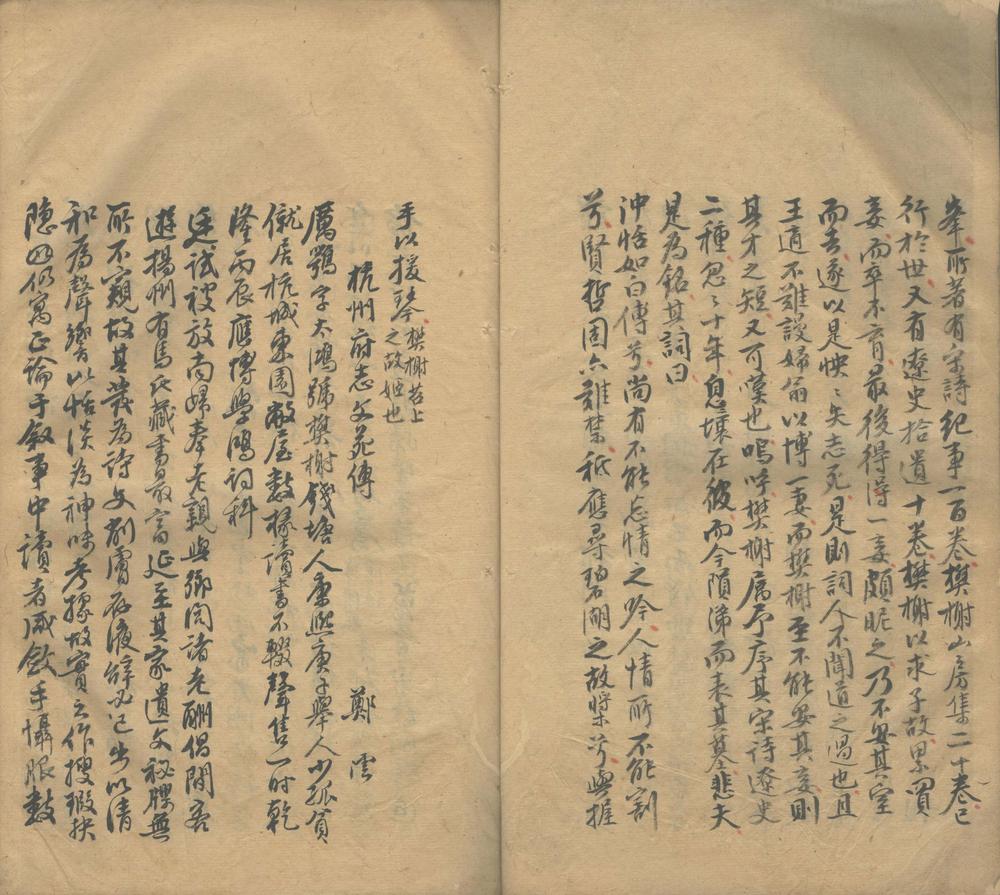 峯所著有宋詩紀事一百卷樊榭山房集二十卷已
行於世又有遼史拾遺十卷樊榭以求子故累買
妾而卒不育最後得一妾頗昵之乃不安其室
而去遂以是怏怏失志死是則詞人不聞道之過也且
王適不難謾婦翁以博一妻而樊榭至不能安其妾則
其才之短又可嘆也嗚呼樊榭屬予序其宋詩遼史
二種忽忽十年息壤在彼而今隕涕而表其墓悲夫
是為銘其詞曰
沖恬如白傅兮尚有不能忘情之吟人情所不能割
兮賢哲固亦難禁秪應尋碧湖之故槳兮與握
手以援琴樊榭苕上
之故姬也
杭州府志文苑傳 鄭澐
厲鶚字太鴻號樊榭錢塘人康熙庚子舉人少孤貧
僦居杭城東園敝屋數椽讀書不輟聲售一時乾
隆丙辰應博學鴻詞科
廷試被放南歸奉老親與鄉閭諸老酬倡間客
遊揚州有馬氏藏書最富延至其家遺文秘牒無
所不窺故其發為詩文削膚存液辭必己出以清
和為聲響以恬淡為神味考據故實之作搜瑕抉
隱仍寓正論于敘事中讀者咸歛手懾服數